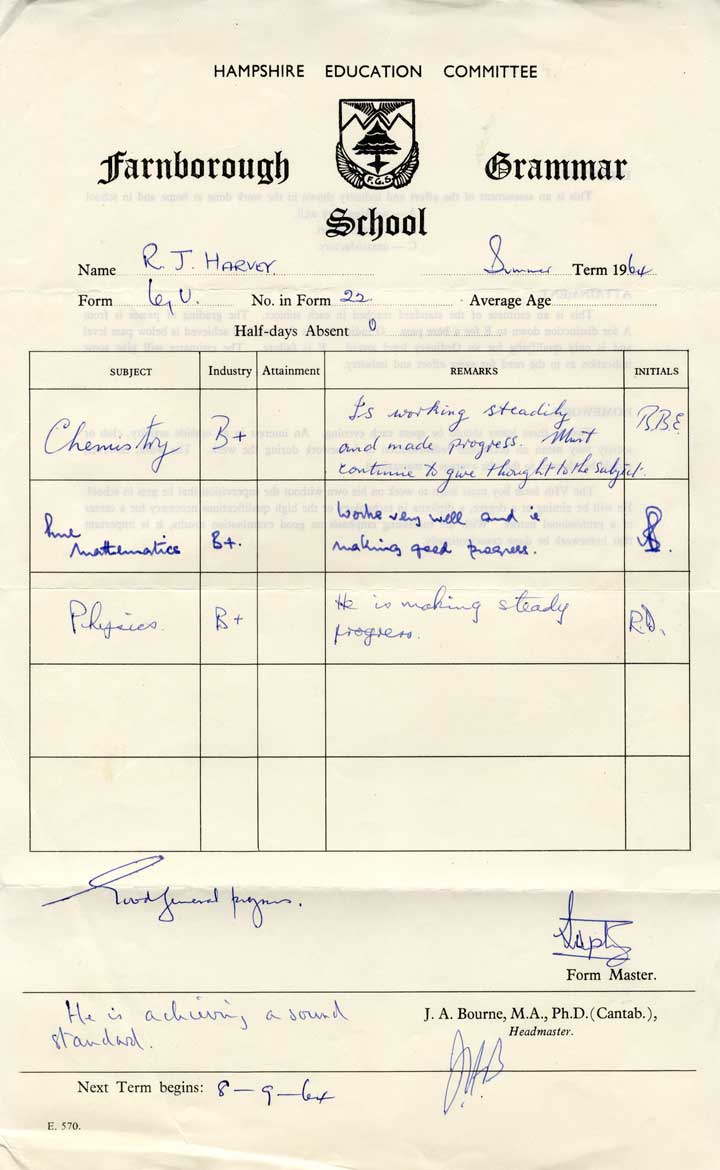 HAMPSHIRE EDUCATION COMMITTEE
Farnborough Grammar
F.G.S
School
Name R. J. HARVEY Summer Term 1964
Form U. No. in Form 22 Average Age
Half-days Absent 0
SUBJECT Industry Attainment REMARKS INITIALS
Chemistry B+ Is working steadily B.B.E.
and made progress. Must
continue to give thought to the subject.
Pure
Mathematics B+. Works very well and is
making good progress.
Physics. B+ He is making steady R.D.
progress.
Good general progress.
Form Master.
He is achieving a sound
standard.
J. A. Bourne, M.A., Ph.D.(Cantab.),
Headmaster.
J.A.B
Next Term begins: 8 - 9 - 64
E. 570.